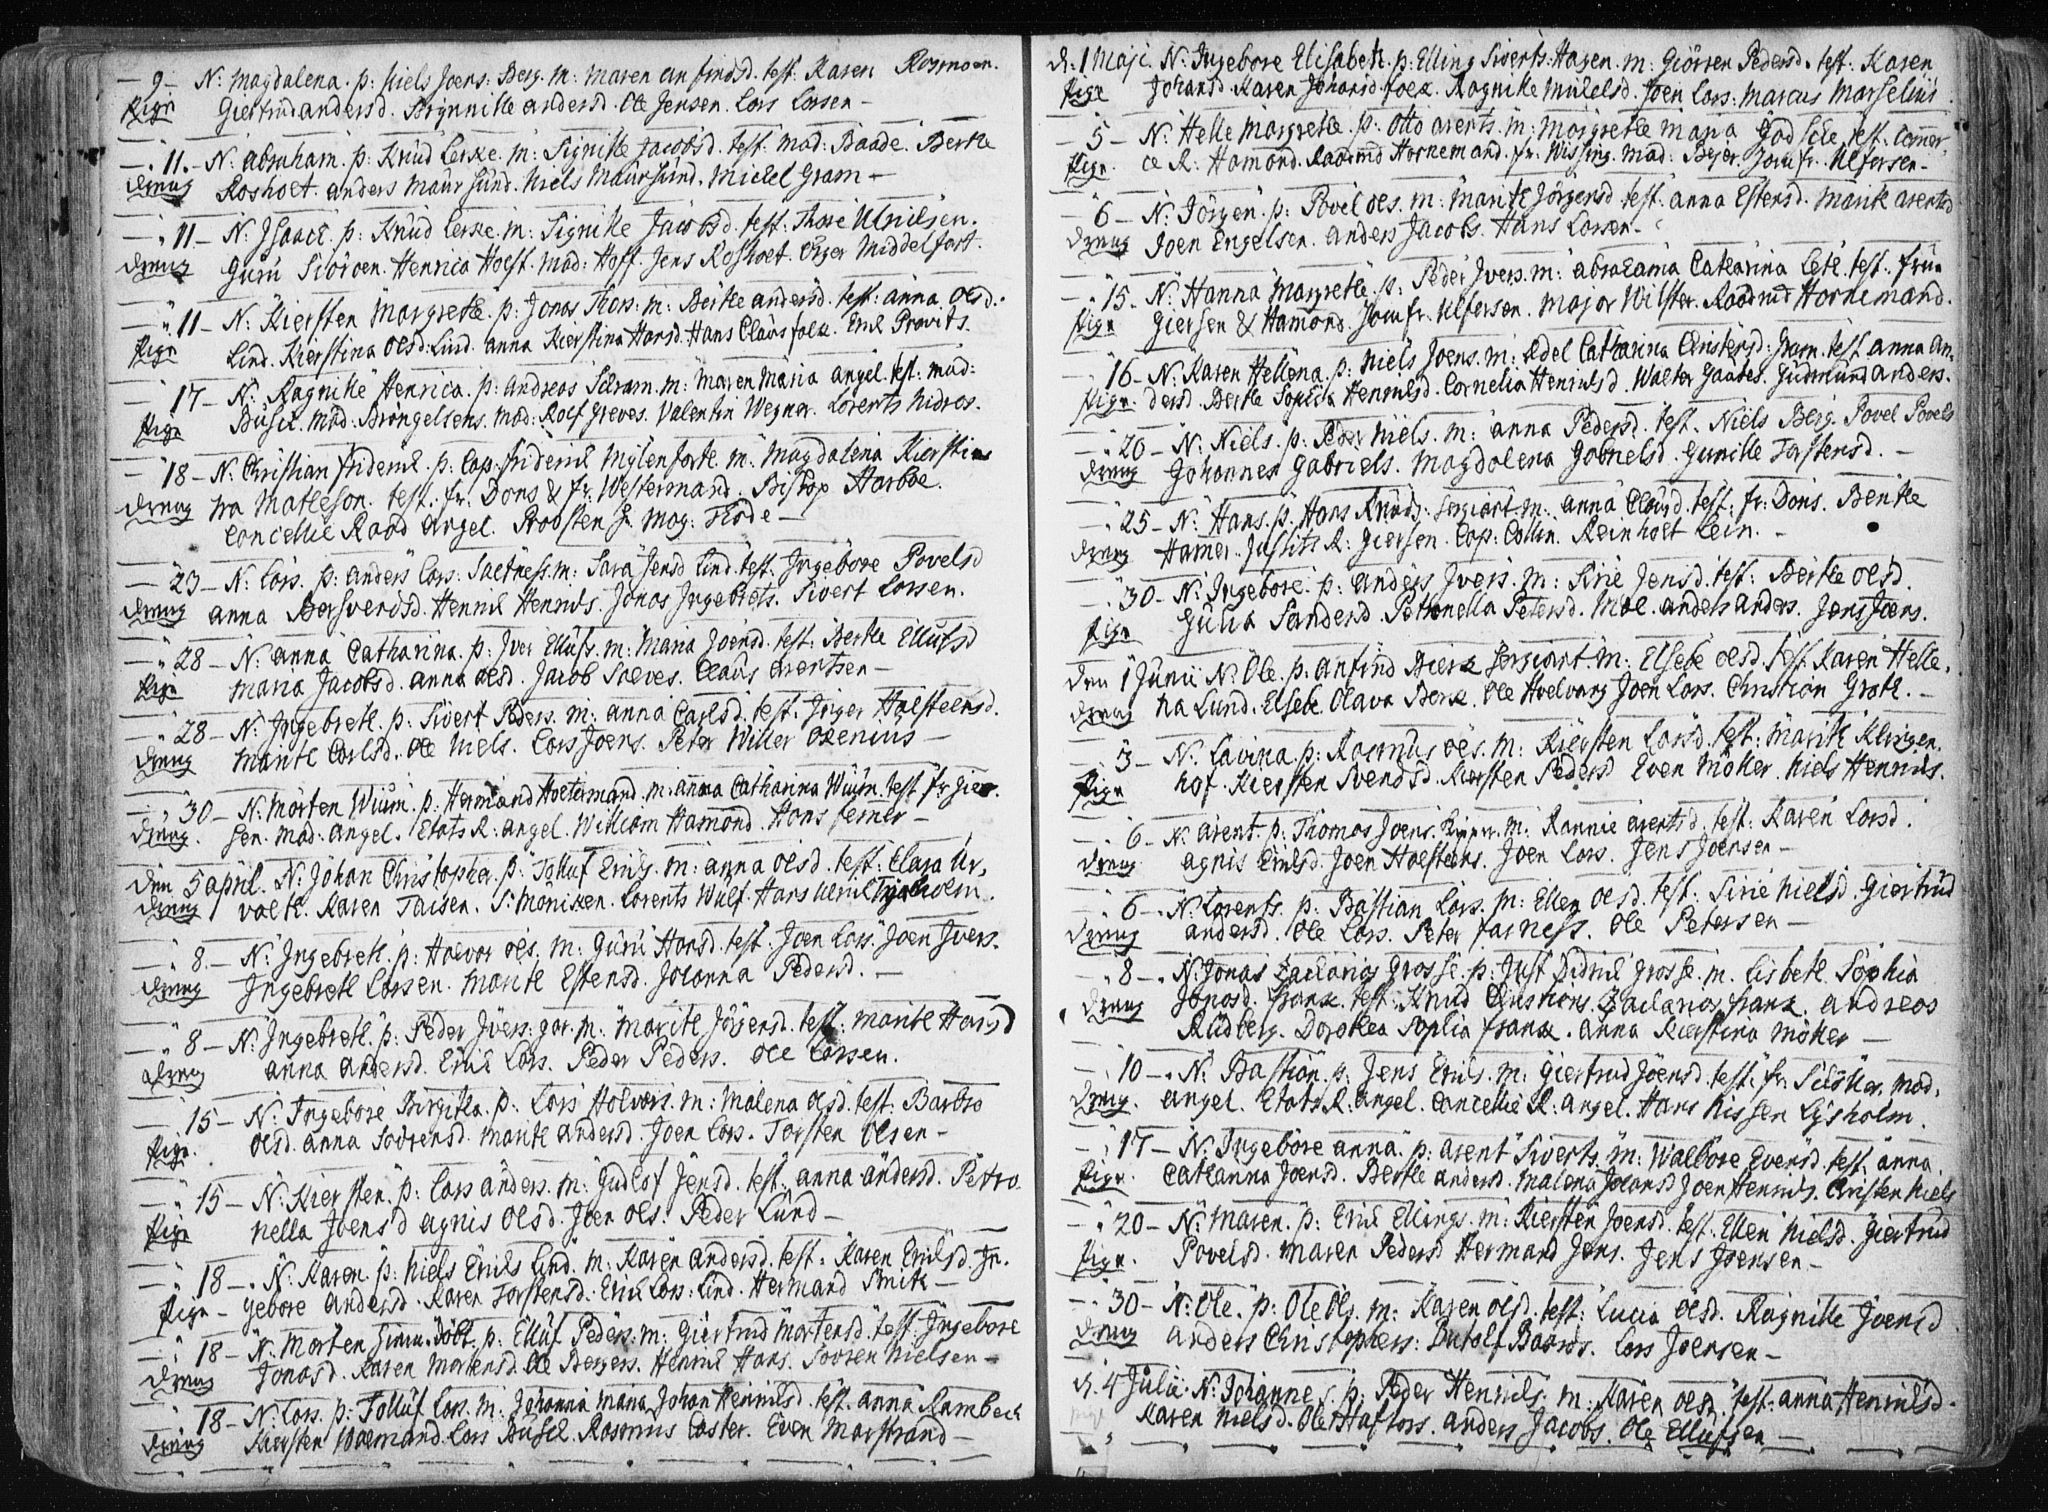 — 9 — N: Magdalena. p: Niels Joens. Berg. m: Maren anfindsd. test: Karen Rosmoen.
Pige Giertrud andersd. Brynnille andersd. Ole Jensen. Lors Lorsen —
— 11. — N: abraham. p: Knud Lerke. m: Signille Jacobsd. test: Mad: Baade. Berthe
dreng Rosholt. anders Maursund. Niels Maursund. Michel Gram —
— 11 — N: Isaach. p: Knud Lerke. m: Signille Jacobsd. test:
dreng Guru Siøroen. Henrica Holst. Mad: Hoff. Jens Rosholt. Eiger Middelfort.
— 11 — N: Kiersten Margrethe. p: Jonas Thors: m: Berthe andersd. test: anna Olsd.
Pige Lind. Kierstina Olsd: Lind. anna Kierstina Hansd. Hans Clausfolch. Erich Provits.
— 17 — N: Ragnille Henrica. p: andreas Schram. m: Maren Maria angel. test: Mad:
Pige Busch. Mad: Brongelsens. Mad: Rolf Greves. Valentin Wegner. Lorents Nidros.
— 18 — N: Christian Friderich. p: Cap: Friderich Mylenforth. m: Magdalena Kiersti
dreng na Matheson. test: fr: Dons & fr: Westermand. Bishop Harboe.
Concellie Raad Angel. Proosten Hr Mag: Thode —
— 23 — N: Lors. p: anders Lors: Saltness. m: Sara Jensd Lind. test: Ingebore Povelsd
dreng anna Bersvendsd. Henrich Henrichs. Jonas Ingebrets. Sivert Lorsen.
— 28 — N: anna Catharina. p: Iver Ellufs. m: Maria Joensd. test: Berthe Ellufsd
Pige Maria Jacobsd. anna Olsd. Jacob Solves. Claus arentsen —
— 28 — N: Ingebreth. p: Sivert Peders. m: anna Carlsd. test: Inger Holsteensd.
dreng Marith Carlsd. Ole Niels. Lors Joens. Peter Willer Oxenius —
— 30 — N: Morten Wium. p: Hermand Holtermand. m: anna Catharina Wium. test: fr Gier-
dreng. sen. Mad: angel. Etats R: angel. William Hamond. Hans ferner —
den 5 april. N: Johan Christopher. p: Tolluf Erichs. m: anna Olsd. test: Clara Ur-
dreng voltk. Karen Taisen. S: Mønichen. Lorents Wulf. Hans Ulrich
— 8. — N: Ingebreth. p: Halvor Ols. m: Guru Hansd. test: Joen Lors. Joen Ivers.
dreng Ingebreth Lorsen. Marith Estensd. Johanna Pedersd. —
— 8 — N: Ingebreth. p: Peder Ivers: gar. m: Marith Jørgensd. test: Marith Hansd
dreng anna Andersd. Erich Lors. Peder Peders. Ole Lorsen.
— 15 — N: Ingebore Birgitha. p: Lors Holvers. m: Malena Olsd. test: Barbro
Pige. Olsd. anna Sørensd. Marith andersd. Joen Lors. Torsten Olsen —
— 15 — N: Kiersten. p: Lors anders. m: Gudlof Jensd. test: anna andersd. Petro
Pige nella Joensd agnis Olsd. Joen Ols. Peder Lund —
— 18 — N: Karen. p: Niels Erichs Lind. m: Karen andersd. test: Karen Erichsd In-
Pige — gebore andersd. Karen Torstensd. Erich Lors: Lind. Hermand Smith —
— 18 — N: Morten p: Elluf Peders. m: Giertrud Mortensd. test: Ingebore
dreng Jonasd. Karen Mortensd. Ole Bergers. Henrich Hans. Søvren Nielsen —
— 18 — N: Lors. p: Tolluf Lors. m: Johanna Maria Johan Henrichsd. test. anna Rambech
dreng Kiersten Wolemand. Lors Busch. Rasmus Coster. Even Marstrand —
d: 1 Maji. N: Ingebore Elisabeth. p: Elling Siverts: Hagen. m: Giørren Pedersd. test: Karen
Pige Johansd. Karen Johansd folch. Ragnille Michelsd. Joen Lors: Marcus Marselius
— 5 — N: Helle Margrethe. p: Otto arents. m: Margrethe Maria Godsche test: Commer-
Pige. ce R: Hamond. Raadmd Hornemand. fr: Wissing. Mad: Bejer. Jomfr: Ulfersen —
— 6 — N: Jørgen. p: Povel Ols. m: Marith Jørgensd. test: anna Estensd. Marith arentsd
dreng Joen Engelsen. anders Jacobs. Hans Lorsen —
— 15 — N: Hanna Margrethe. p: Peder Ivers. m: abrahama Catharina Leth. test: frue
Pige Giersen & Hamond. Jomfr: Ulfersen. Major Wilster. Raadmd Hornemand.
— 16 — N: Karen Hellena. p: Niels Joens. m: Adel Catharina Christensd: Gram. test anna An-
Pige. dersd. Berthe Sophia Henrichsd. Cornelia Henrichsd. Walter Gaabes. Gudmund anders.
— 20 — N: Niels. p: Peder Niels. m: anna Pedersd. test. Niels Berg. Povel Povels
dreng Johannes Gabriels. Magdalena Gabrielsd. Gunille Torstensd. —
— 25 — N: Hans. p: Hans Knuds: Sergiant. m: anna Clausd. test: fr: Dons. Benthe
dreng Hamer. Justits R: Giersen. Cap: Collin. Reinholt Lein. —
— 30 — N: Ingebore. p: anders Ivers. m: Sirie Jensd. test: Berthe Olsd.
Pige Gulia Sandersd. Petronella Petersd. anders anders. Jens Joens.
den 1 Junii N: Ole. p: Anfind Bierk Sergiant. m: Elsebe Olsd. test Karen Helle-
dreng na Lund. Elsebe Olava Berk. Ole Hvelvang Joen Lors. Christian Groth. —
— 3 — N: Lavina. p: Rasmus Ols. m: Kiersten Larsd. test: Marith Klingen-
Pige hof. Kiersten Svendsd. Kiersten Pedersd Even Møller. Niels Henrichs.
— 6 — N: arent. p: Thomas Joens. m: Rannie arentsd. test: Karen Lorsd.
dreng agnis Erichsd. Joen Holsteens. Joen Lors. Jens Joensen —
— 6 — N: Lorents. p: Bastian Lors. m: Ellen Olsd. test: Sirie Nielsd. Giertrud
dreng andersd. Ole Lors. Peter farness. Ole Petersen —
— 8 — N: Jonas Zacharias Grosse. p: Just Didrich Grosse. m. Lisbeth Sophia
dreng Jonasd. franck. test: Knud Christians. Zacharias franck. andreas
Rudberg. Dorothea Sophia franck. anna Kierstina Møller —
— 10 — N: Bastian. p: Jens Erichs. m: Giertrud Joensd. test: fr: Mad.
dreng. angel. Etats R: angel. Concellie R: angel. Hans Nissen Lysholm.
— 17 — N: Ingebore anna. p: arent Siverts. m: Walbore Evensd. test: anna
Pige. Catharina Joensd. Berthe andersd. Malena Johansd Joen Henrichs. Christen Niels
— 20 — N: Maren. p: Erich Ellings. m: Kiersten Joensd. test. Ellen Nielsd. Giertrud
Pige. Povelsd. Maren Pedersd Hermand Jens. Jens Joensen —
— 30 — N: Ole. p: Ole Ols. m: Karen Olsd. test: Lucia Olsd. Ragnille Joensd
dreng anders Christophers: Botolf Baards. Lors Joensen —
d. 4 Julii. N: Johannes. p: Peder Henrichs. m. Karen Olsd test: anna Henrichsd.
Karen Nielsd. Ole Haftors. anders Jacobs. Ole Ellufsen —